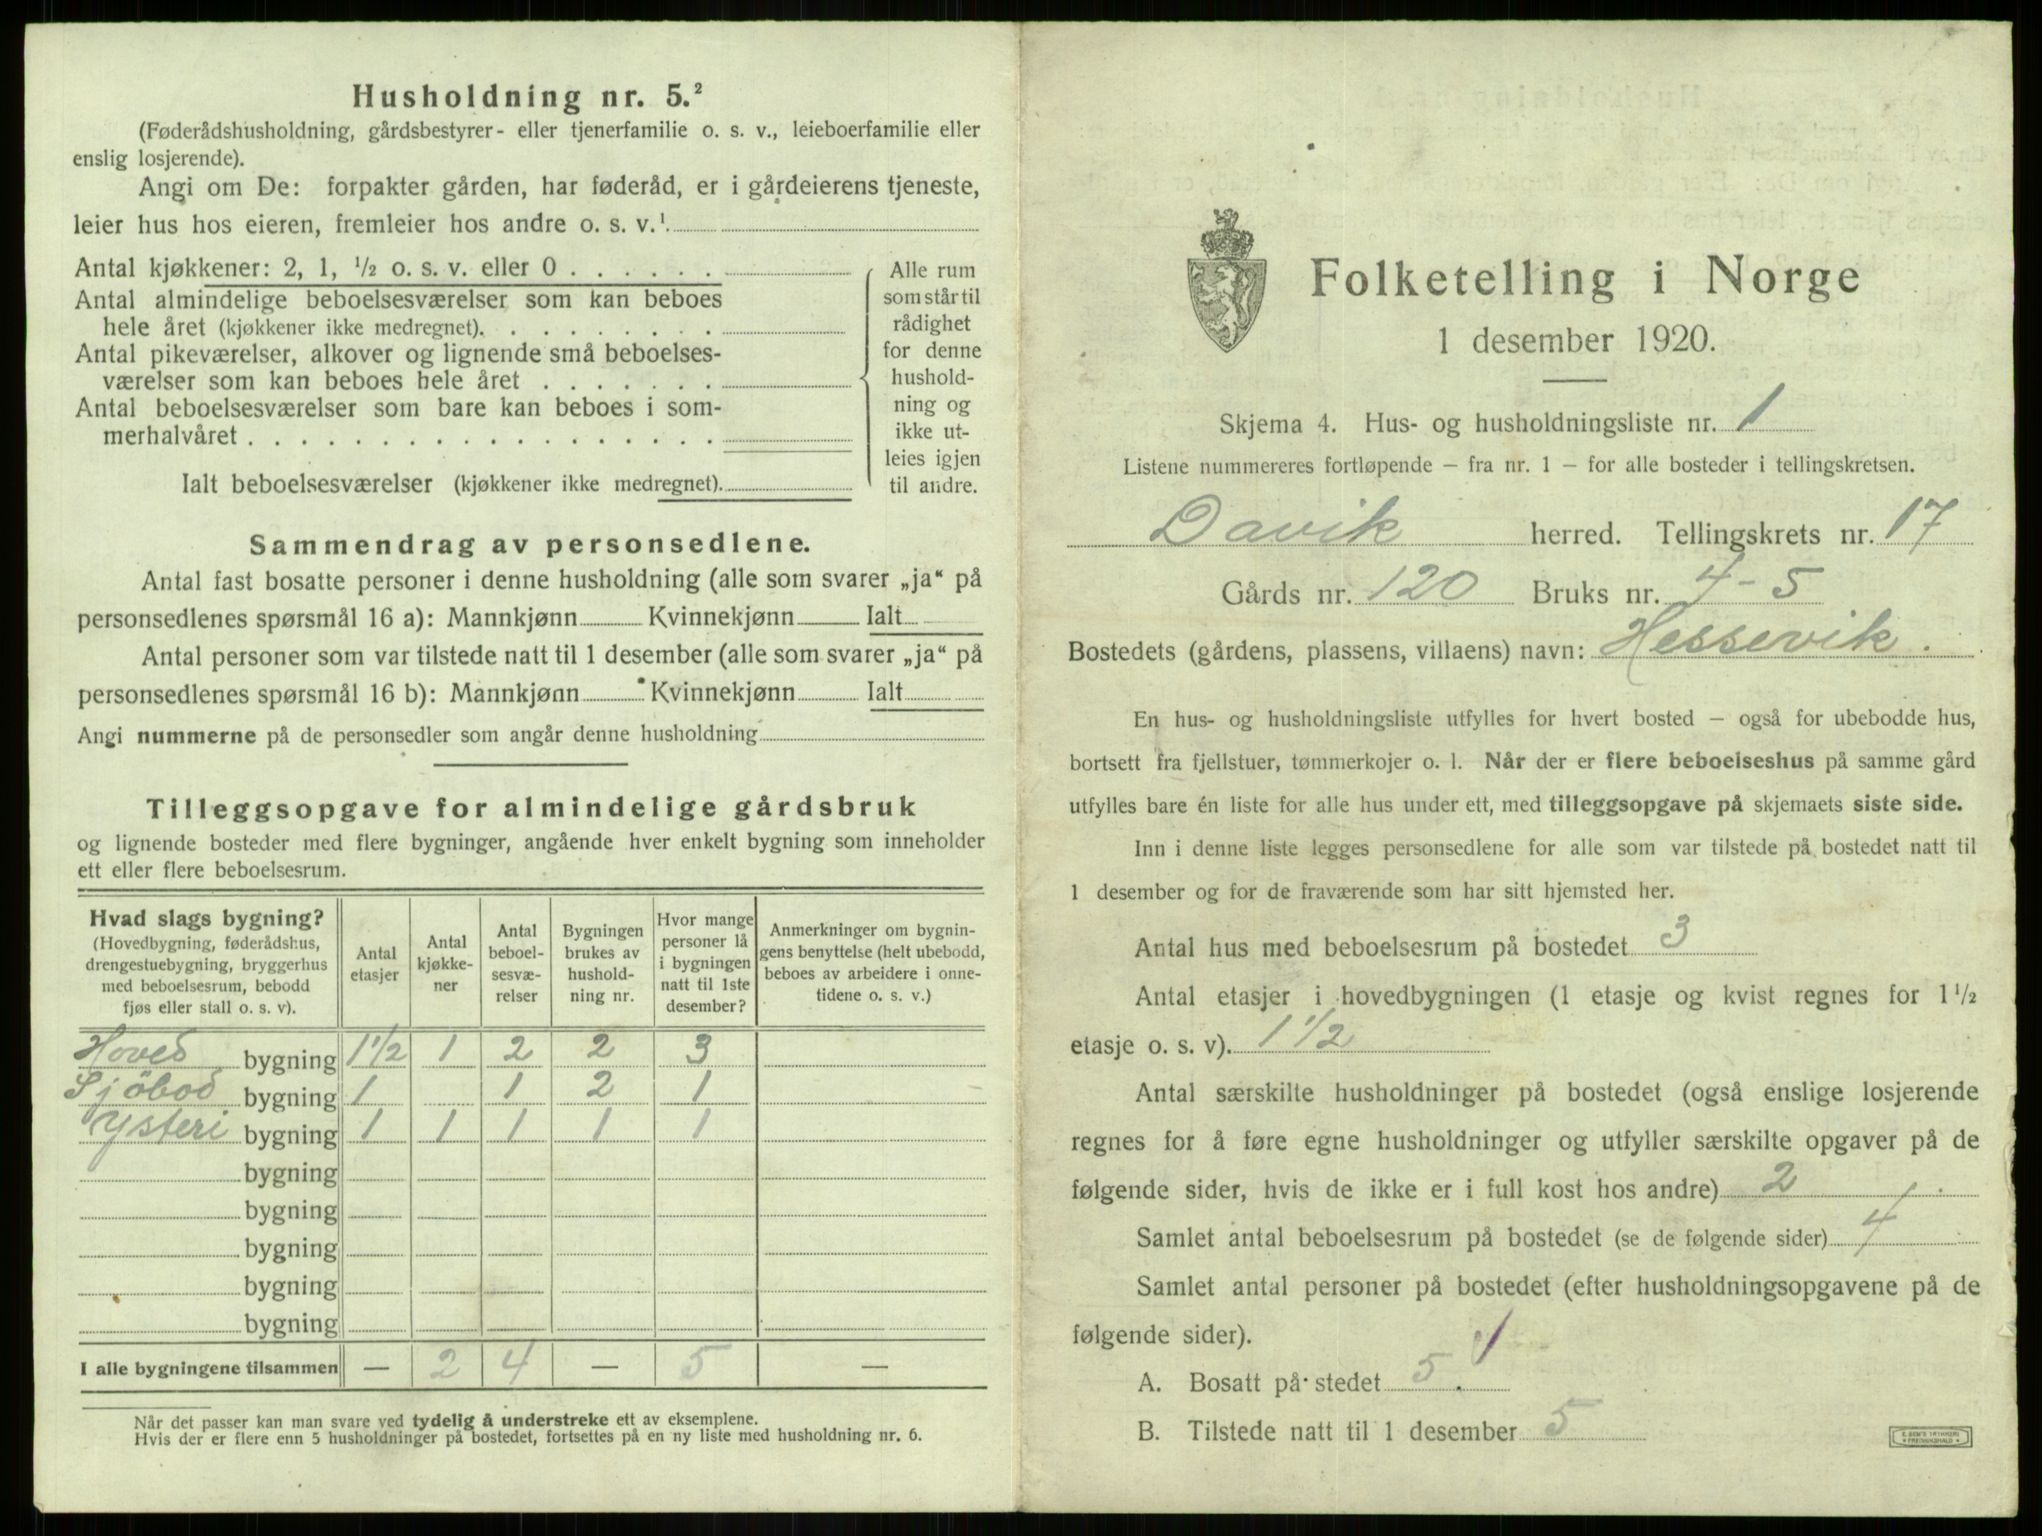 Husholdning nr. 5.²
(Føderådshusholdning, gårdsbestyrer- eller tjenerfamilie o. s. v., leieboerfamilie eller
enslig losjerende).
Angi om De: forpakter gården, har føderåd, er i gårdeierens tjeneste,
leier hus hos eieren, fremleier hos andre o. s. v.¹
Antal kjøkkener: 2, 1, ½ o. s. v. eller 0 . . . . . .
Antal almindelige beboelsesværelser som kan beboes
hele året (kjøkkener ikke medregnet). . . . . . . . .
Antal pikeværelser, alkover og lignende små beboelses-
værelser som kan beboes hele året . . . . . . .
Antal beboelsesværelser som bare kan beboes i som-
merhalvåret . . . . . . . . . . . . . . . . . .
Ialt beboelsesværelser (kjøkkener ikke medregnet).
Alle rum
som står til
rådighet
for denne
hushold-
ning og
ikke ut-
leies igjen
til andre.
Sammendrag av personsedlene.
Antal fast bosatte personer i denne husholdning (alle som svarer „ja“ på
personsedlenes spørsmål 16 a): Mannkjønn Kvinnekjønn Ialt
Antal personer som var tilstede natt til 1 desember (alle som svarer „ja“ på
personsedlenes spørsmål 16 b): Mannkjønn Kvinnekjønn Ialt
Angi nummerne på de personsedler som angår denne husholdning
Tilleggsopgave for almindelige gårdsbruk
og lignende bosteder med flere bygninger, angående hver enkelt bygning som inneholder
ett eller flere beboelsesrum.
Hvad slags bygning?
(Hovedbygning, føderådshus,
drengestuebygning, bryggerhus
med beboelsesrum, bebodd
fjøs eller stall o. s. v).
Antal
etasjer
Antal
kjøkke-
ner
Antal
beboel-
sesvæ-
relser
Bygningen
brukes av
hushold-
ning nr.
Hvor mange
personer lå
i bygningen
natt til 1ste
desember?
Anmerkninger om bygnin-
gens benyttelse (helt ubebodd,
beboes av arbeidere i onne-
tidene o. s. v.)
Hoved bygning 1½ 1 2 2 3
Sjöbod bygning 1 1 2 1
Ysteri bygning 1 1 1 1 1
bygning
bygning
bygning
bygning
bygning
I alle bygningene tilsammen — 2 4 — 5 —
Når det passer kan man svare ved tydelig å understreke ett av eksemplene.
Hvis der er flere enn 5 husholdninger på bostedet, fortsettes på en ny liste med husholdning nr. 6.
Folketelling i Norge
1 desember 1920.
Skjema 4. Hus- og husholdningsliste nr. 1
Listene nummereres fortløpende – fra nr. 1 – for alle bosteder i tellingskretsen.
Davik herred. Tellingskrets nr. 17
Gårds nr. 120 Bruks nr. 4-5
Bostedets (gårdens, plassens, villaens) navn: Hessevik.
En hus- og husholdningsliste utfylles for hvert bosted – også for ubebodde hus,
bortsett fra fjellstuer, tømmerkojer o. l. Når der er flere beboelseshus på samme gård
utfylles bare én liste for alle hus under ett, med tilleggsopgave på skjemaets siste side.
Inn i denne liste legges personsedlene for alle som var tilstede på bostedet natt til
1 desember og for de fraværende som har sitt hjemsted her.
Antal hus med beboelsesrum på bostedet 3
Antal etasjer i hovedbygningen (1 etasje og kvist regnes for 1½
etasje o. s. v). 1½
Antal særskilte husholdninger på bostedet (også enslige losjerende
regnes for å føre egne husholdninger og utfyller særskilte opgaver på de
følgende sider, hvis de ikke er i full kost hos andre) 2
Samlet antal beboelsesrum på bostedet (se de følgende sider) 4
Samlet antal personer på bostedet (efter husholdningsopgavene på de
følgende sider).
A. Bosatt på stedet 5.
B. Tilstede natt til 1 desember 5